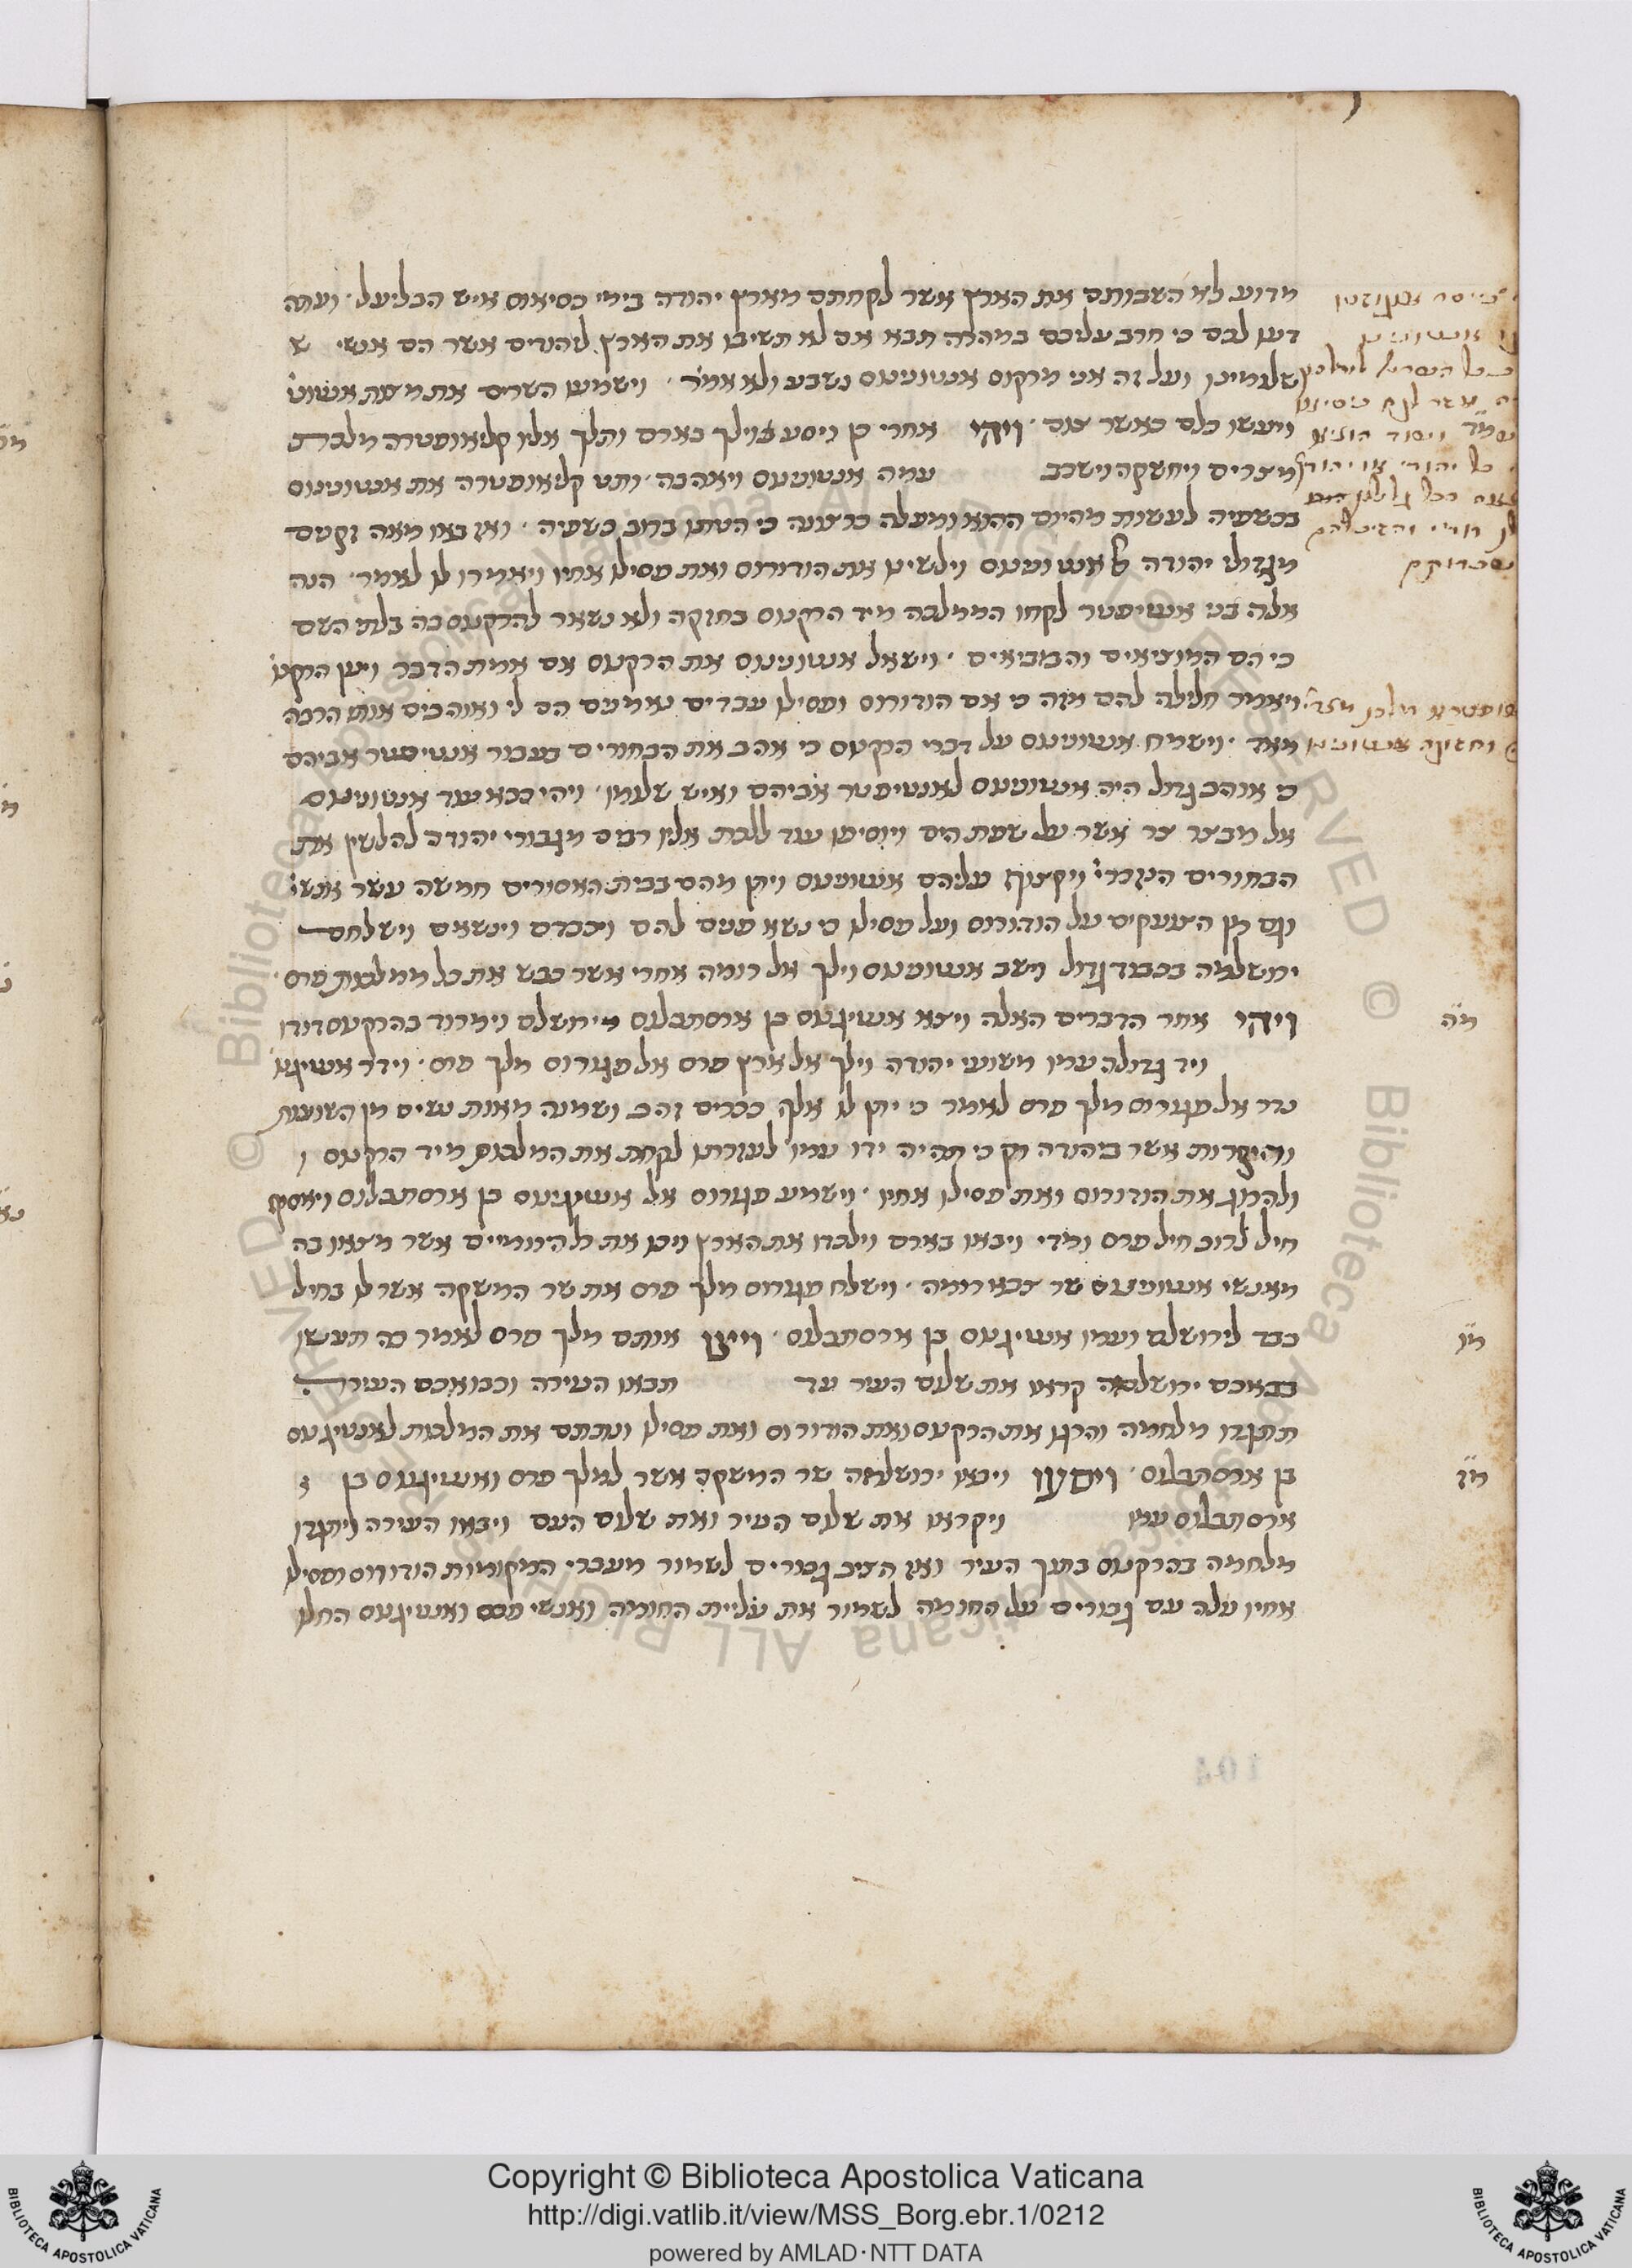 מדוע לא השבותם את הארץ אשר לקחתם מארץ יהודה בימי כסיאוס איש הבליעל · ועתה
דעו לכם כי חרב עליכם במהרה תבא אם לא תשיבו את הארץ ליהודים אשר הם אנשי ש
שלומינו ועל זה אני מרקוס אנטוניאוס נשבע ולא אמר׳ · וישמעו השרים את מצות אנטוני׳
ויעשו כלם כאשר צום · ויהי אחרי כן ניסע וילך בארם והלך אליו קליאופטרה מלכת
מצרים ויחשקה וישכב עמה אנטוניוס ויאהבה · ותט קליאופטרה את אנטוניוס
בכשפיה לעשות מהיום ההוא ומעלה כרצונה כי הטתו ברוב כשפיה · ואז באו מאה זקנים
מגדולי יהודה אנטוניוס וילשינו את הורודוס ואת פסילו אחיו ויאמרו לו לאמר · הנה
אלה בני אנטיפטר לקחו הממלכה מיד הרקנוס בחזקה ולא נשאר להרקנוס בה בלתי השם
כי הם המוציאים והמביאים · וישאל אנטוניוס את הרקנוס אם אמת הדבר ויען הרקנ׳
ויאמר חלילה להם מזה כי אם הורודוס ופסילו עבדים נאמנים הם לי ואוהבים אותי הרבה
מאד · וישמח אנטוניוס על דברי הרקנוס כי אהב את הבחורים בעבור אנטיפטר אביהם
כי אוהב גדול היה אנטוניוס לאנטיפטר אביהם ואיש שלומו · ויהי כבא עוד אנטוניוס
אל מבצר צר אשר על שפת הים ויוסיפו עוד ללכת אליו רבים מגבורי יהודה להלשין את
הבחורים הנזכרי׳ ויקצוף עליהם אנטוניוס ויתן מהם בבית האסורים חמשה עשר אנשי׳
וגם מן הצועקים על הורודוס ועל פסילו כי נשא פנים להם ויכבדם וינשאם וישלחם
ירושלמה בכבוד גדול וישב אנטוניוס וילך אל רומה אחרי אשר כבש את כל ממלכת פרס ·
ויהי אחר הדברים האלה ויצא אנטיגנוס בן ארסתבלוס מירושלם וימרוד בהרקנוס דודו
ויד גדולה עמו משועי יהודה וילך אל ארץ פרס אל פגורוס מלך פרס · וידר אנטיגנו׳
נדר אל פגורוס מלך פרס לאמר כי יתן לו אלף ככרים זהב ושמנה מאות נשים מן השועות
והיקרות אשר ביהודה רק כי תהיה ידו עמו לעזרתו לקחת את המלכות מיד הרקנוס ו
ולהרוג את הורודוס ואת פסילו אחיו · וישמע פגורוס אל אנטיגנוס בן ארסתבלוס ויאסוף
חיל לרוב חיל פרס ומדי ויבאו בארם וילכדו את הארץ ויכו את כל הרומיים אשר מצאו בה
מאנשי אנטוניוס שר צבא רומה · וישלח פגורוס מלך פרס את שר המשקה אשר לו בחיל
כבד לירושלם ועמו אנטיגנוס בן ארסתבלוס · ויצו אותם מלך פרס לאמר כה תעשו
בבאכם ירושלמה קראו את שלום העיר עד תבאו העירה ובבואכם העירה
תתגרו מלחמה והרגו את הרקנוס ואת הורודוס ואת פסילו ונתתם את המלכות לאנטיגנוס
בן ארסתבלוס · ויסעו ויבאו ירושלמה שר המשקה אשר למלך פרס ואנטיגנוס בן
ארסתבלוס עמו ויקראו את שלום העיר ואת שלום העם ויבאו העירה ויתגרו
מלחמה בהרקנוס בתוך העיר ואז הציב גבורים לשמור מעברי המקומות הורודוס ופסילו
אחיו עלה עם גבורים על החומה לשמור את עליית החומה ואנשי פרס ואנטיגנוס החלו
מ״ה
מ״ו
מ״ז
104
Copyright © Biblioteca Apostolica Vaticana
http://digi.vatlib.it/view/MSS_Borg.ebr.1/0212
powered by AMLAD·NTT DATA
BIBLIOTECA APOSTOLICA VATICANA
BIBLIOTECA APOSTOLICA VATICANA